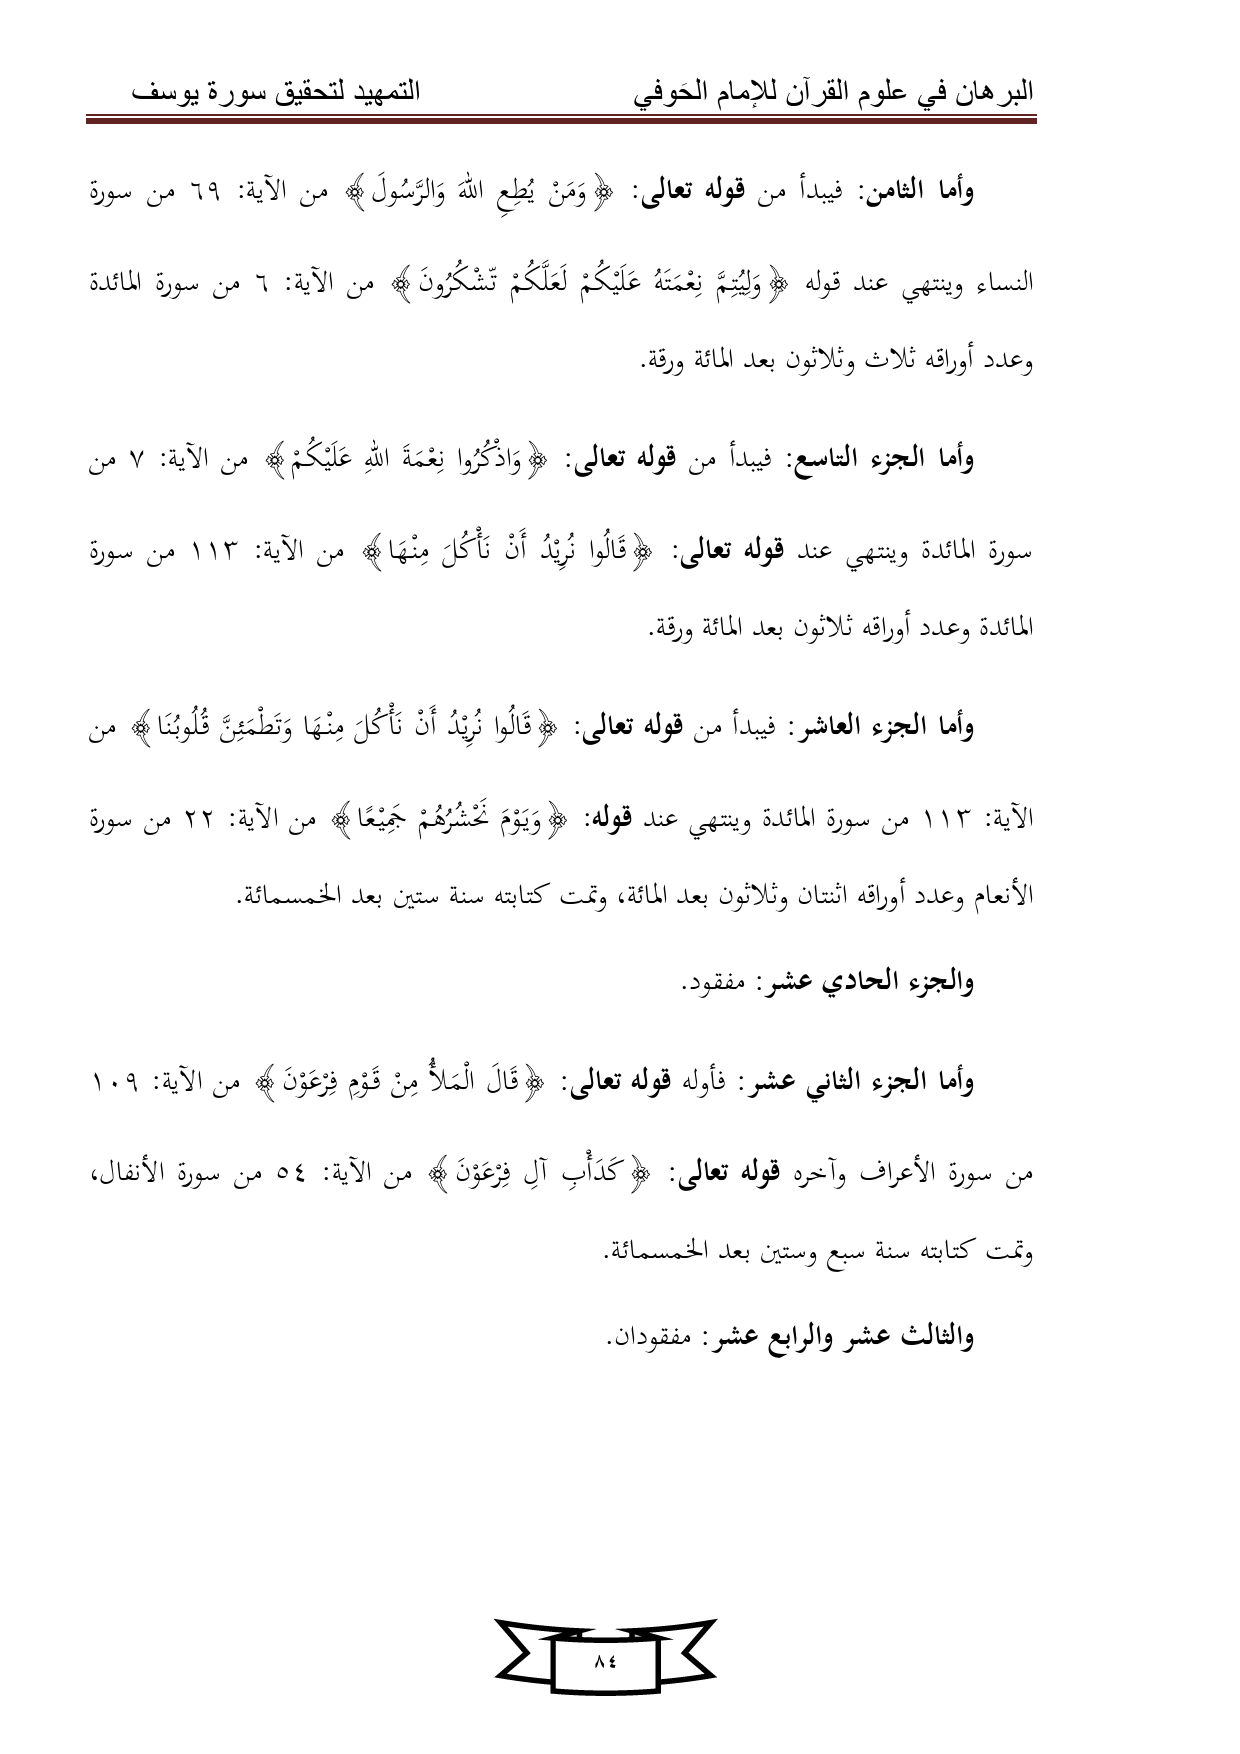 البرهان في علوم القرآن للإمام الحَوفي التمهيد لتحقيق سورة يوسف
وأما الثامن: فيبدأ من قوله تعالى: ﴿وَمَنْ يُطِعِ اللهَ وَالرَّسُولَ﴾ من الآية: ٦٩ من سورة
النساء وينتهي عند قوله ﴿وَلِيُتِمَّ نِعْمَتَهُ عَلَيْكُمْ لَعَلَّكُمْ تّشْكُرُونَ﴾ من الآية: ٦ من سورة المائدة
وعدد أوراقه ثلاث وثلاثون بعد المائة ورقة.
وأما الجزء التاسع: فيبدأ من قوله تعالى: ﴿وَاذْكُرُوا نِعْمَةَ اللهِ عَلَيْكُمْ﴾ من الآية: ٧ من
سورة المائدة وينتهي عند قوله تعالى: ﴿قَالُوا نُرِيْدُ أَنْ نَأْكُلَ مِنْهَا﴾ من الآية: ١١٣ من سورة
المائدة وعدد أوراقه ثلاثون بعد المائة ورقة.
وأما الجزء العاشر: فيبدأ من قوله تعالى: ﴿قَالُوا نُرِيْدُ أَنْ نَأْكُلَ مِنْهَا وَتَطْمَئِنَّ قُلُوبُنَا﴾ من
الآية: ١١٣ من سورة المائدة وينتهي عند قوله: ﴿وَيَوْمَ نَحْشُرُهُمْ جَمِيْعًا﴾ من الآية: ٢٢ من سورة
الأنعام وعدد أوراقه اثنتان وثلاثون بعد المائة، وتمت كتابته سنة ستين بعد الخمسمائة.
والجزء الحادي عشر: مفقود.
وأما الجزء الثاني عشر: فأوله قوله تعالى: ﴿قَالَ الْمَلأُ مِنْ قَوْمِ فِرْعَوْنَ﴾ من الآية: ١٠٩
من سورة الأعراف وآخره قوله تعالى: ﴿كَدَأْبِ آلِ فِرْعَوْنَ﴾ من الآية: ٥٤ من سورة الأنفال،
وتمت كتابته سنة سبع وستين بعد الخمسمائة.
والثالث عشر والرابع عشر: مفقودان.
٨٤